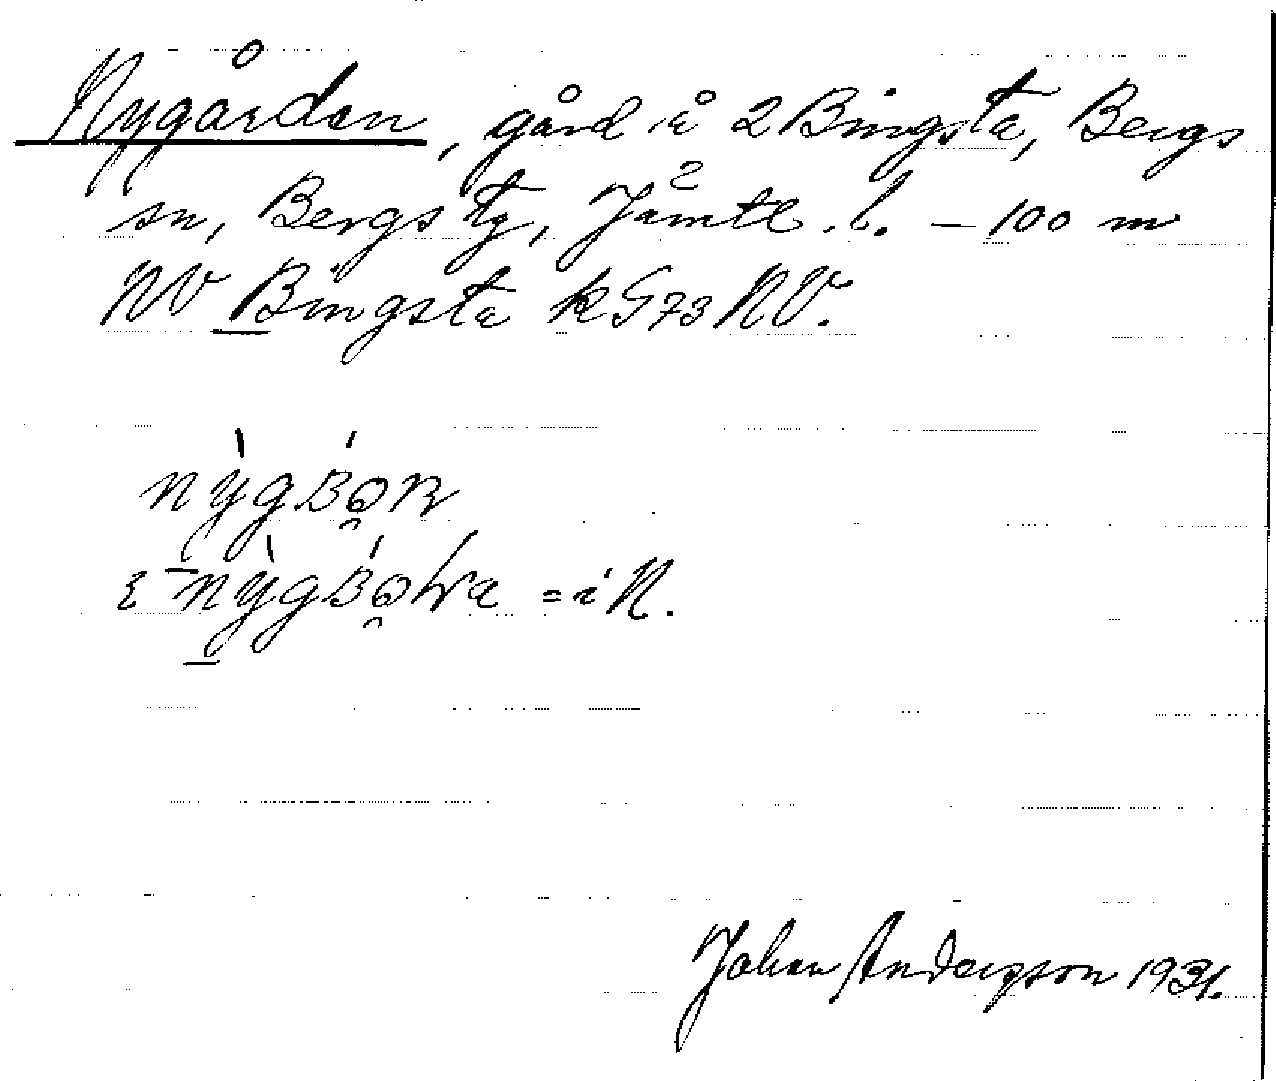 Nygården, gård å 2 Bingsta, Bergs
sn, Bergs tg, Jämtl. l. – 100 m
NV Bingsta k G73 NV.
= i N.
Johan Anderson 1931.